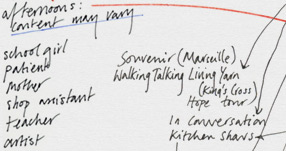 afternoons:
content may vary
school girl
patient
mother
shop assistant
teacher
artist
Souvenir (Marseille)
Walking Talking Living Yarn
(King's Cross
Hope tour)
In Conversation
Kitchen Shars